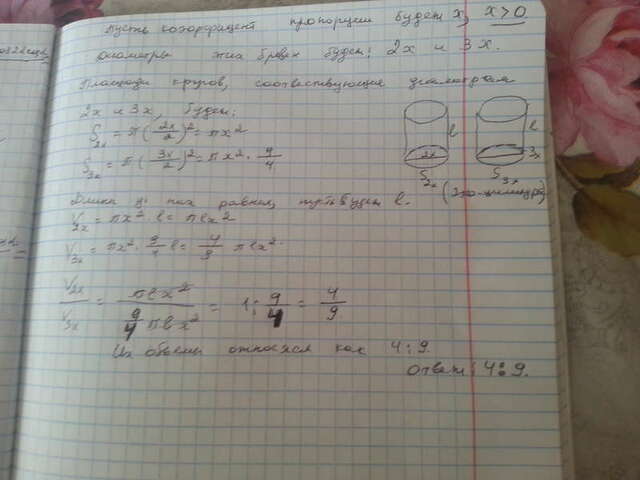 Пусть коэффициент пропорции будет x, x > 0
диаметры этих брёвен будет: 2x и 3x.
Площади кругов, соответствующие диаметрам
2x и 3x, будут:
S2x = π(2x/2)² = πx²
S3x = π(3x/2)² = πx² · 9/4
2x
l
3x
l
S2x
S3x
(это-цилиндры)
Длина у них равная, пусть будет l.
V2x = πx² · l = πlx²
V3x = πx² · 9/4 l = 4/9 πlx².
V2x/V3x = πlx² / (9/4 πlx²) = 1 : 9/4 = 4/9
Их объемы относятся как 4:9.
Ответ: 4:9.